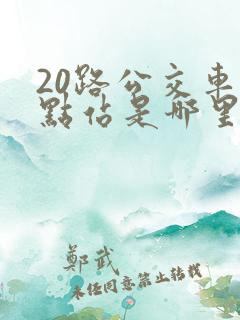 20路公交車
點佔是哪里
鄭武
未经同意禁止转载